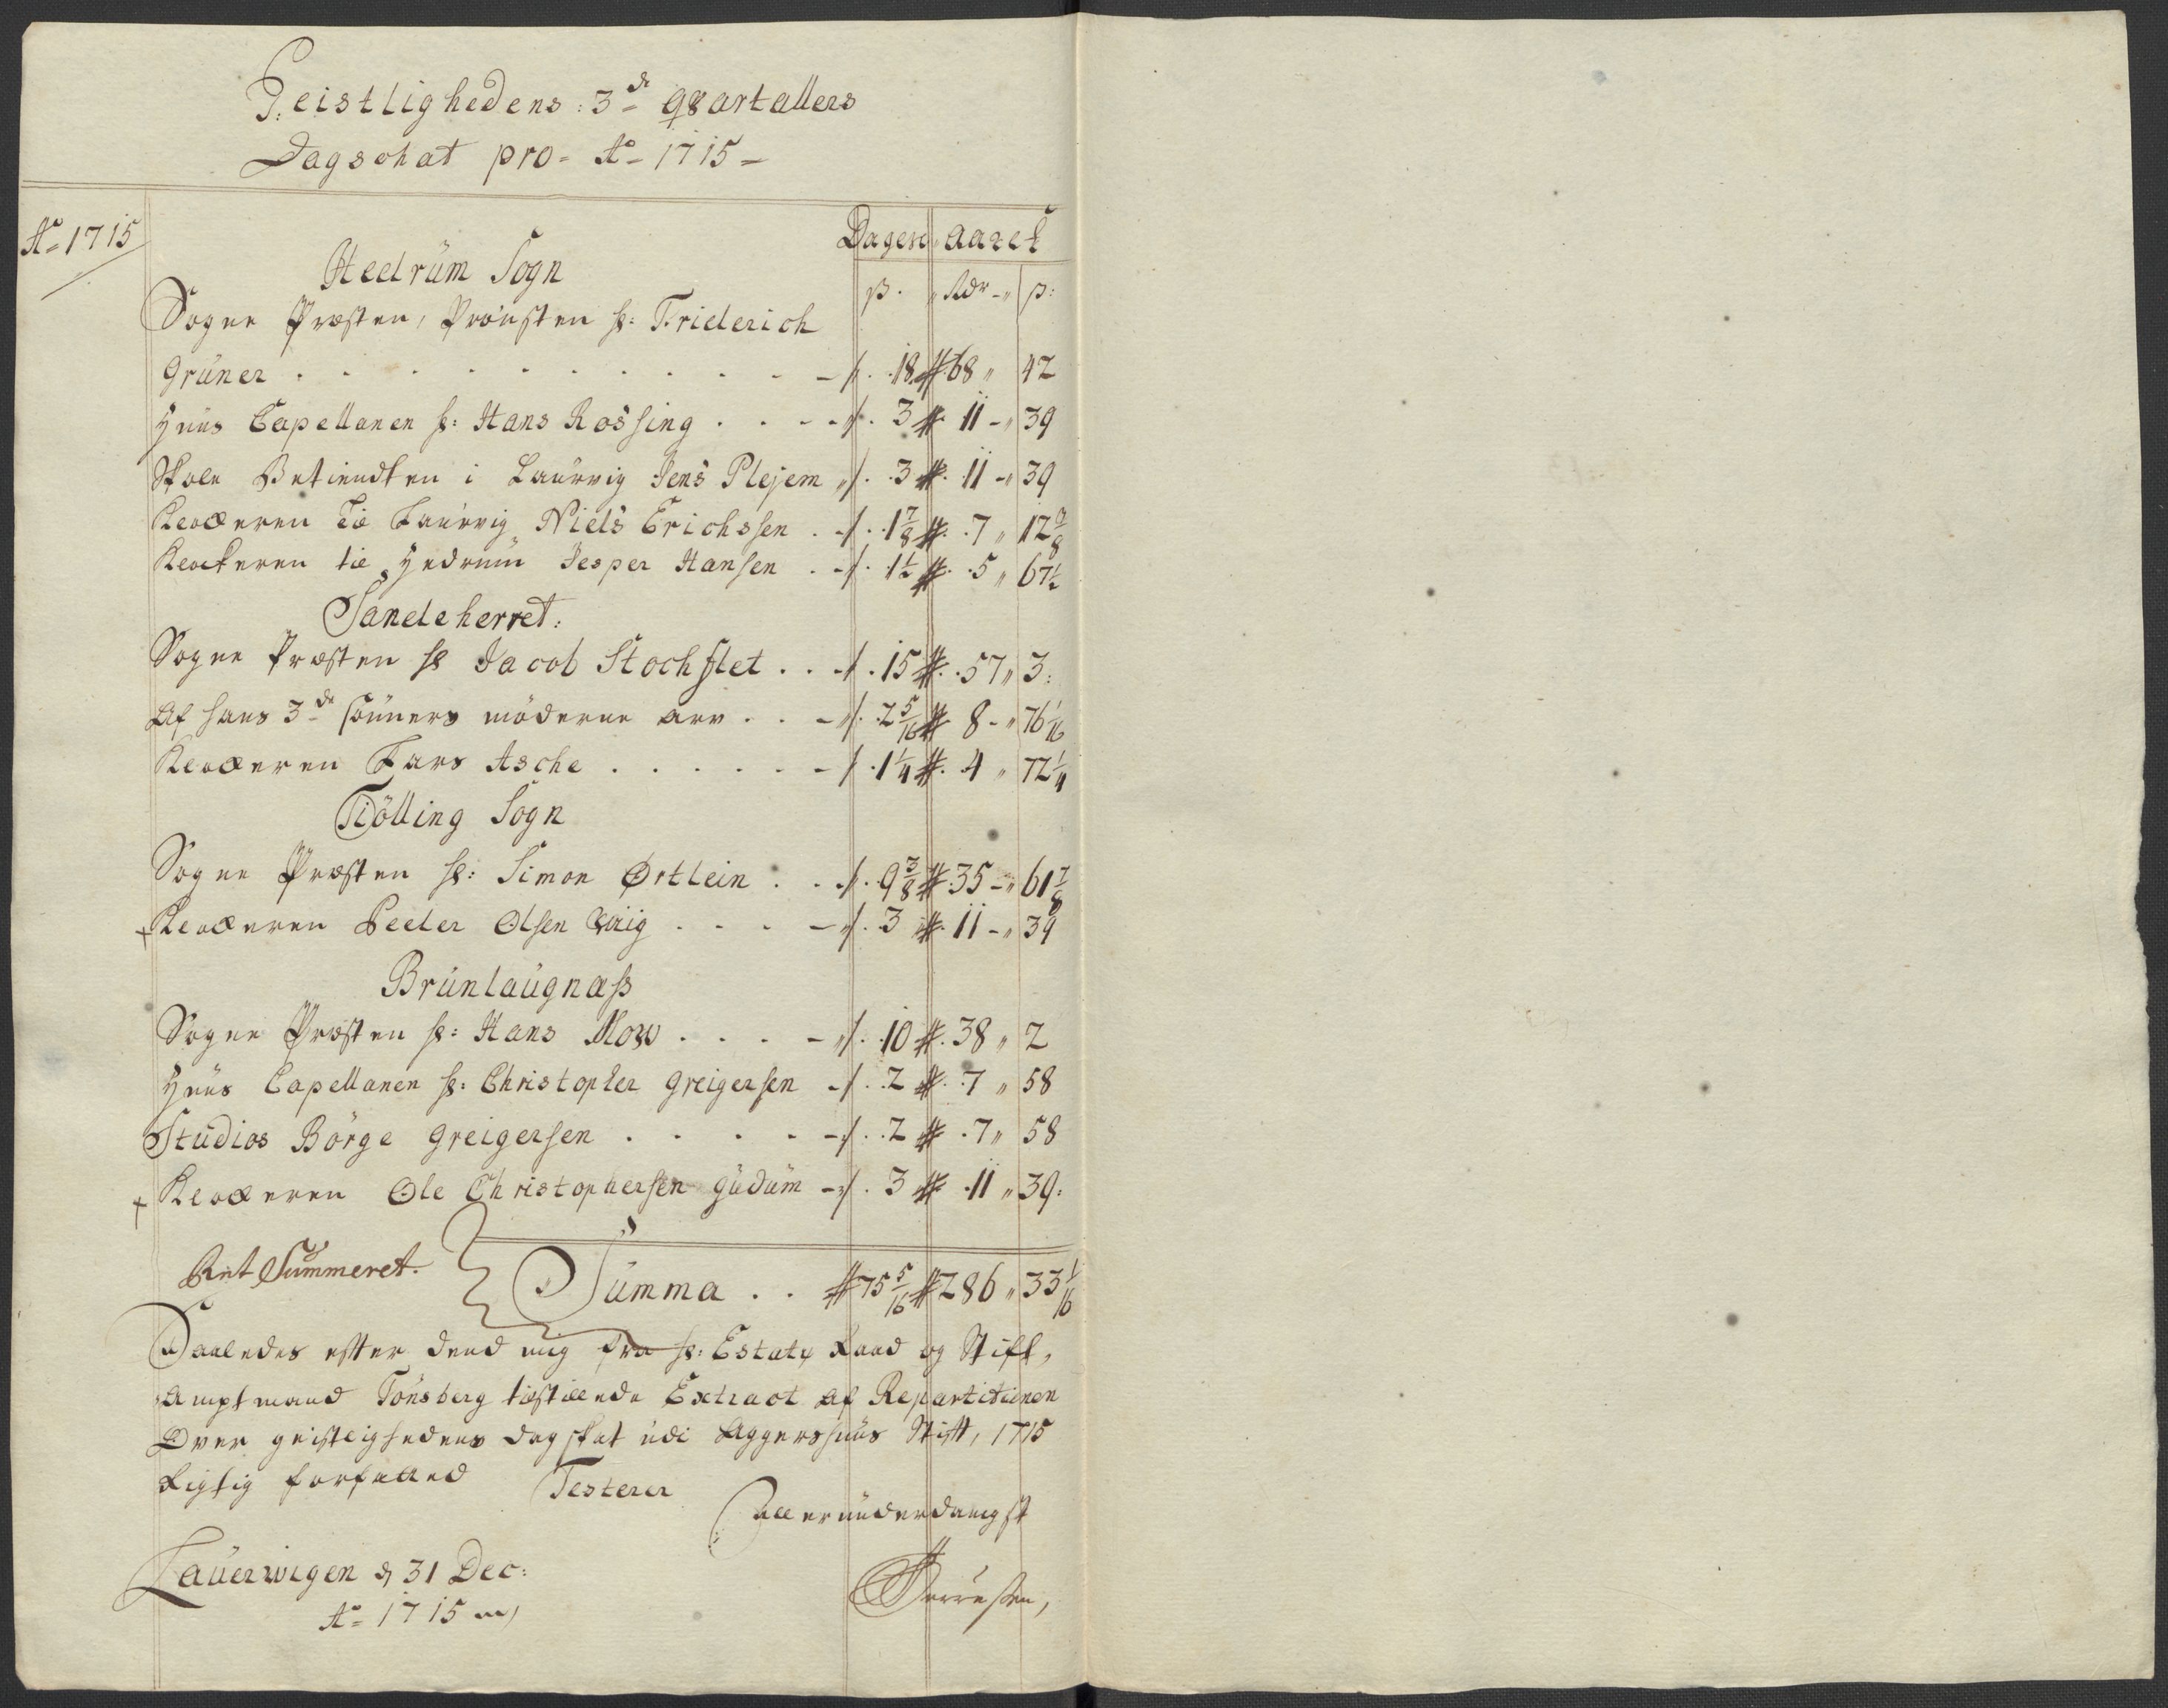 Geistlighedens: 3de Qvartallers
Dagschat pro Ao 1715
Ao 1715
Dagen Aaret
Hedrüm Sogn
ß. Rdr ß:
Sogne Præsten, Provsten hr: Friderich
Grüner . . . . 18 68 42
Hans Capellanen hr: Hans Rossing . . . 3 11 39
Skole Betiendten i Laurvig Jens Plejem 3 11 39
Klockeren til Laurvig Niels Erichssen . 1 7/8 7 12 7/8
Klockeren til Hedrum Jesper Hansen . 1 1/2 5 67 1/2
Sandeherret:
Sogne Præsten hr Jacob Stochflet . . 15 57 3:
Af hans 3de sönners möderne arv . . 2 5/16 8 76 1/16
Klockeren Lars Asche . . . . 1 1/4 4 72 1/4
Tiölling Sogn
Sogne Præsten hr: Simon Ørtlein . . 9 3/8 35 61 7/8
+ Klockeren Peder Olsen . . . 3 11 39
Brünlaugnæss
Sogne Præsten hr: Hans Mow . . . 10 38 2
Hans Capellanen hr: Christopher Greigersen 2 7 58
Studios Börge Greigersen . . . . 2 7 58
+ Klockeren Ole Christophersen Gudum 3 11 39:
Ret Summeret.
Summa . . 75 5/16 286 33 1/16
Saaledes efter dend mig fra hr: Estatz Raad og Stift,
Amptmand Tonsberg tilstillede Extract af Repartitionen
Over geistlighedens dagskat udi Aggershuus Stift, 1715
Rigtig forfatted Testerer
Allerunderdanigst
Lauerwigen d 31 Dec:
Ao 1715